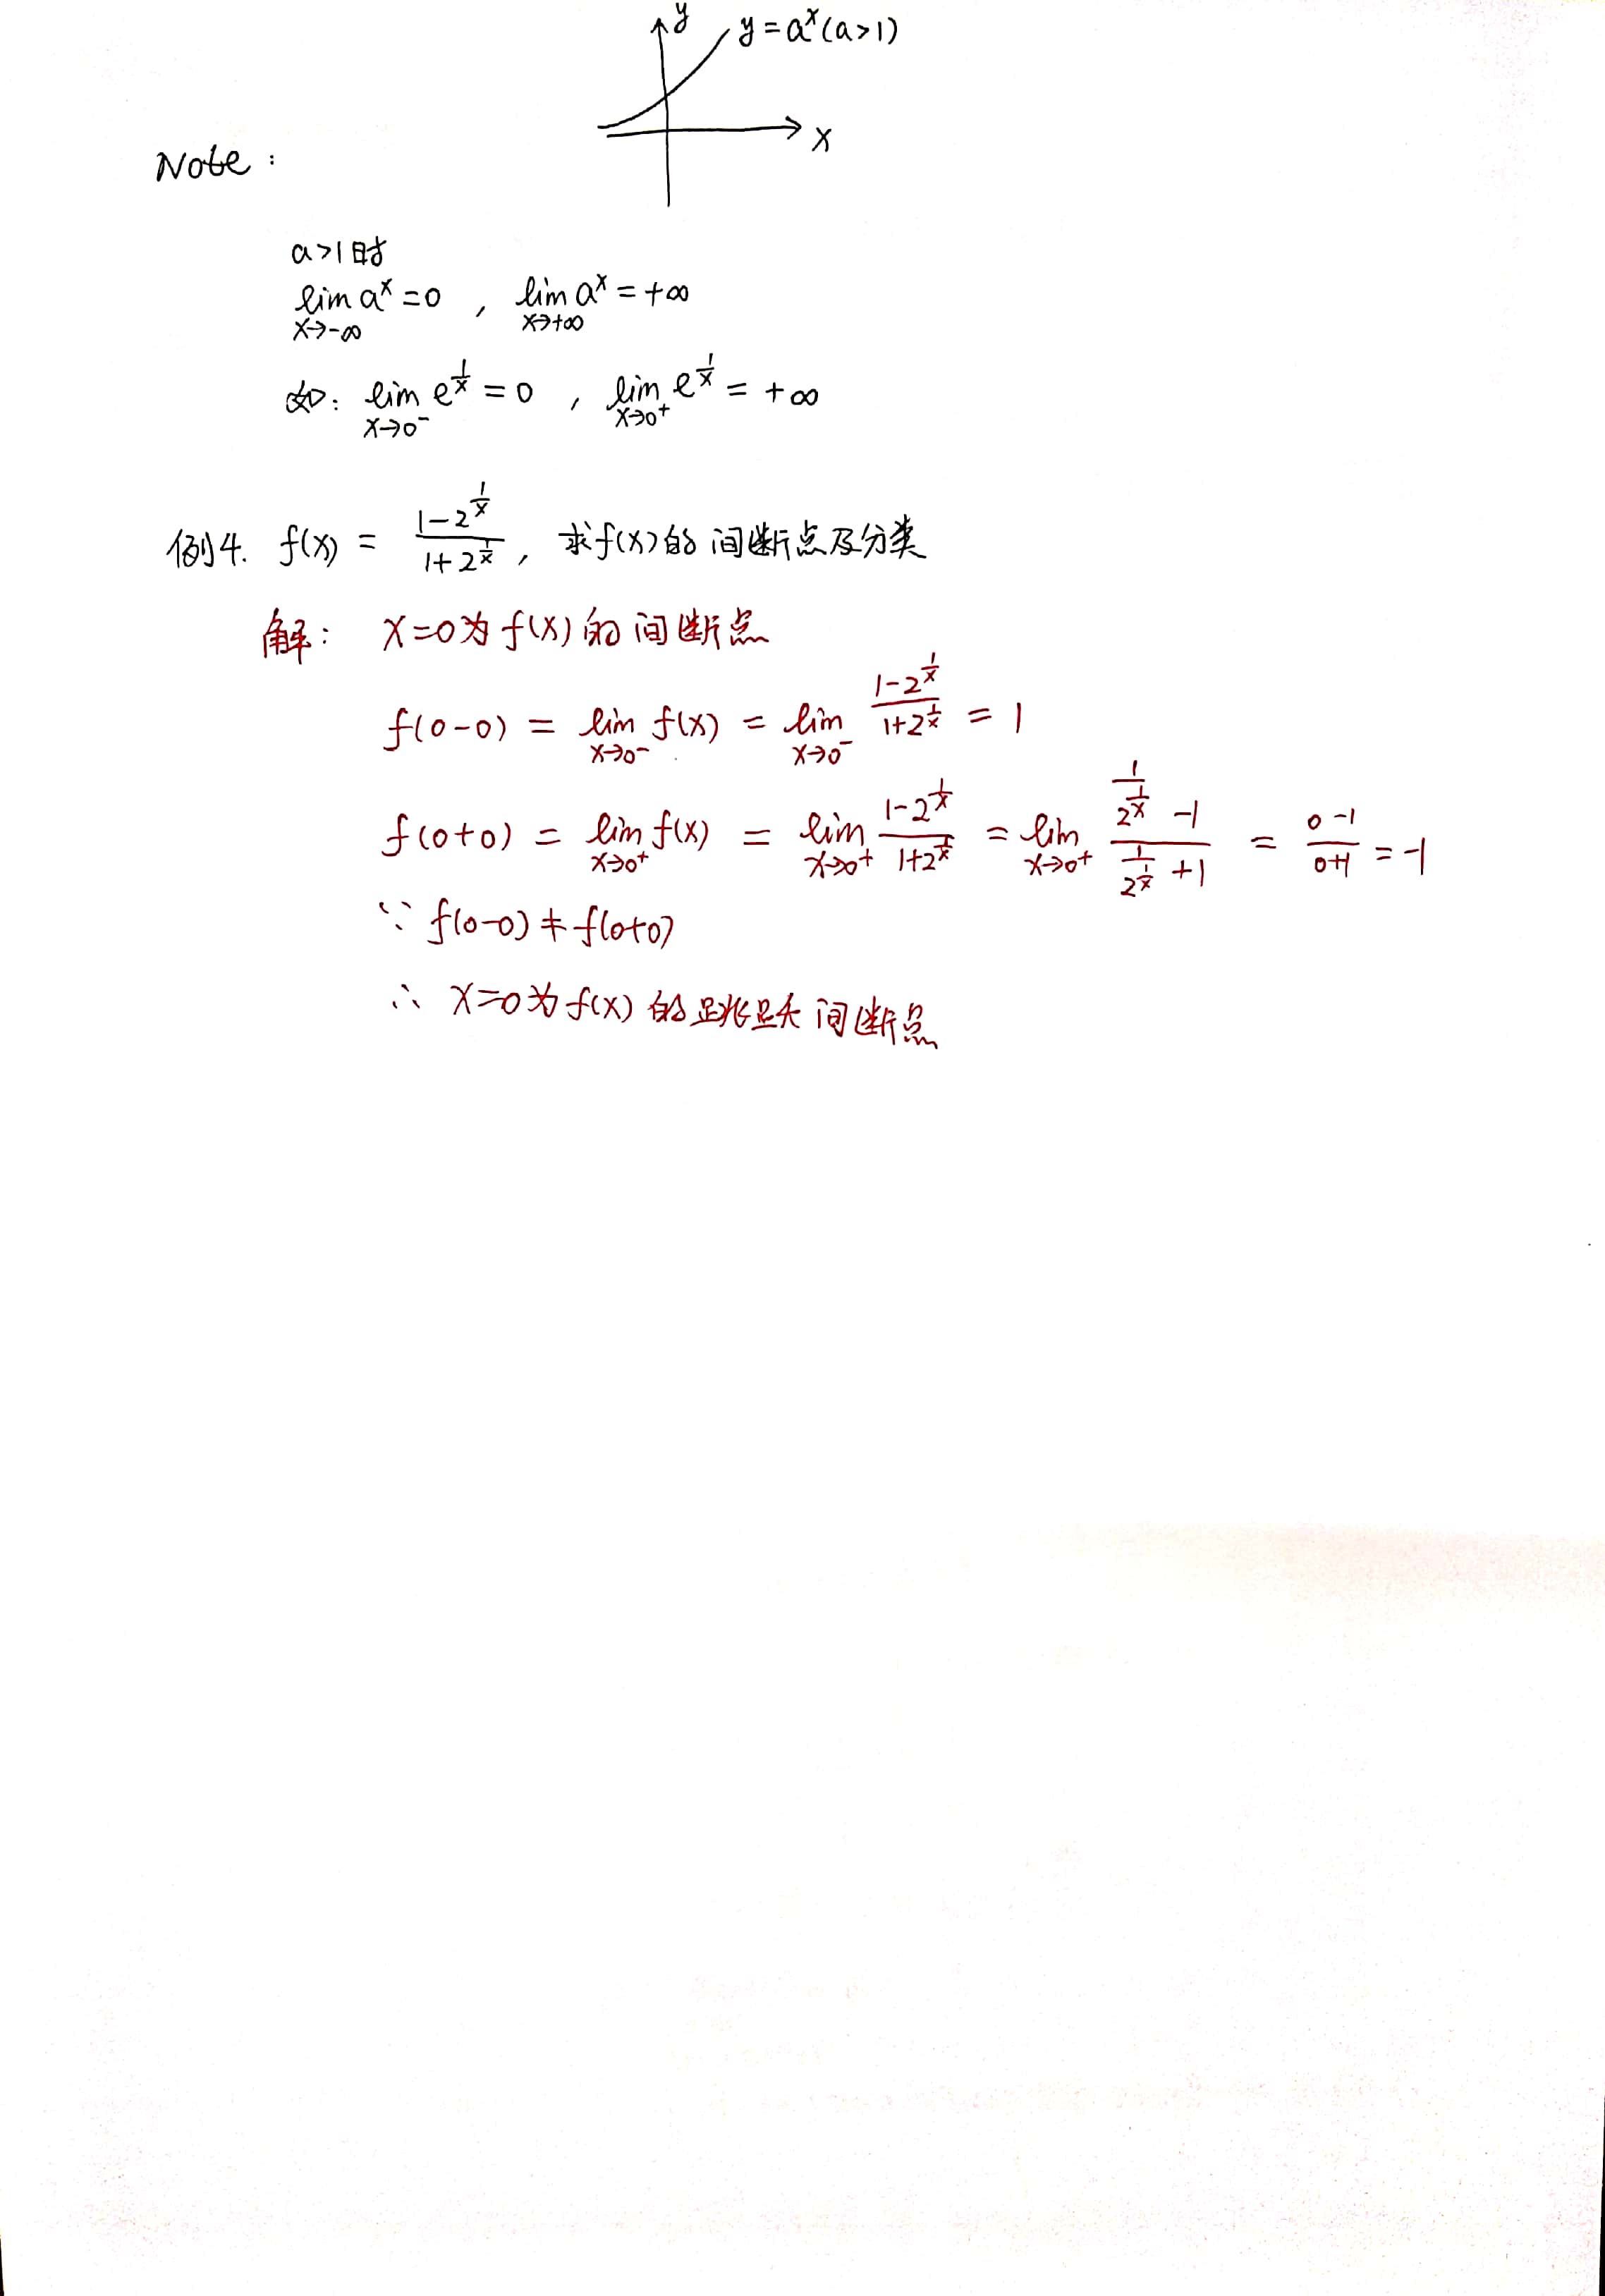 y
y = a^x (a>1)
x
Note :
a>1时
lim_{x→-∞} a^x = 0 , lim_{x→+∞} a^x = +∞
如: lim_{x→0^-} e^{1/x} = 0 , lim_{x→0^+} e^{1/x} = +∞
例4. f(x) = (1-2^{1/x})/(1+2^{1/x}) , 求f(x)的间断点及分类
解: x=0为f(x)的间断点
f(0-0) = lim_{x→0^-} f(x) = lim_{x→0^-} (1-2^{1/x})/(1+2^{1/x}) = 1
f(0+0) = lim_{x→0^+} f(x) = lim_{x→0^+} (1-2^{1/x})/(1+2^{1/x}) = lim_{x→0^+} (1/2^{1/x} -1)/(1/2^{1/x} +1) = (0-1)/(0+1) = -1
∵ f(0-0) ≠ f(0+0)
∴ x=0为f(x)的跳跃间断点